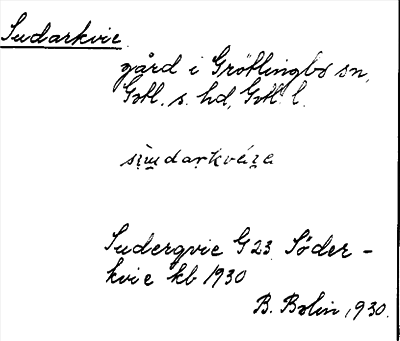 Sudarkvie
gård i Grötlingbo sn,
Gotl. s. hd, Gotl. l.
Sudergvie G23 Söder-
kvie kb 1930
B. Bolin, 1930.